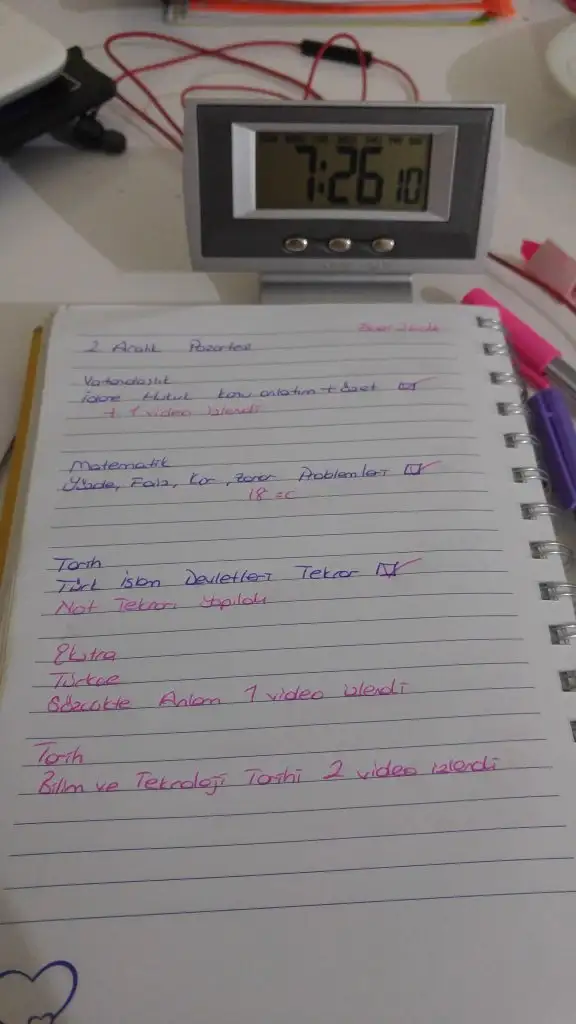 7:26 10
2 Aralık Pazartesi
Vatandaşlık
İdare Hukuk konu anlatım + özet
+ 1 video izlendi
Matematik
Yüzde, Faiz, Kar, Zarar Problemleri
18
Tarih
Türk İslam Devletleri Tekrar
Not Tekrarı Yapıldı
Ekstra
Türkçe
Sözcükte Anlam 1 video izlendi
Tarih
Bilim ve Teknoloji Tarihi 2 video izlendi